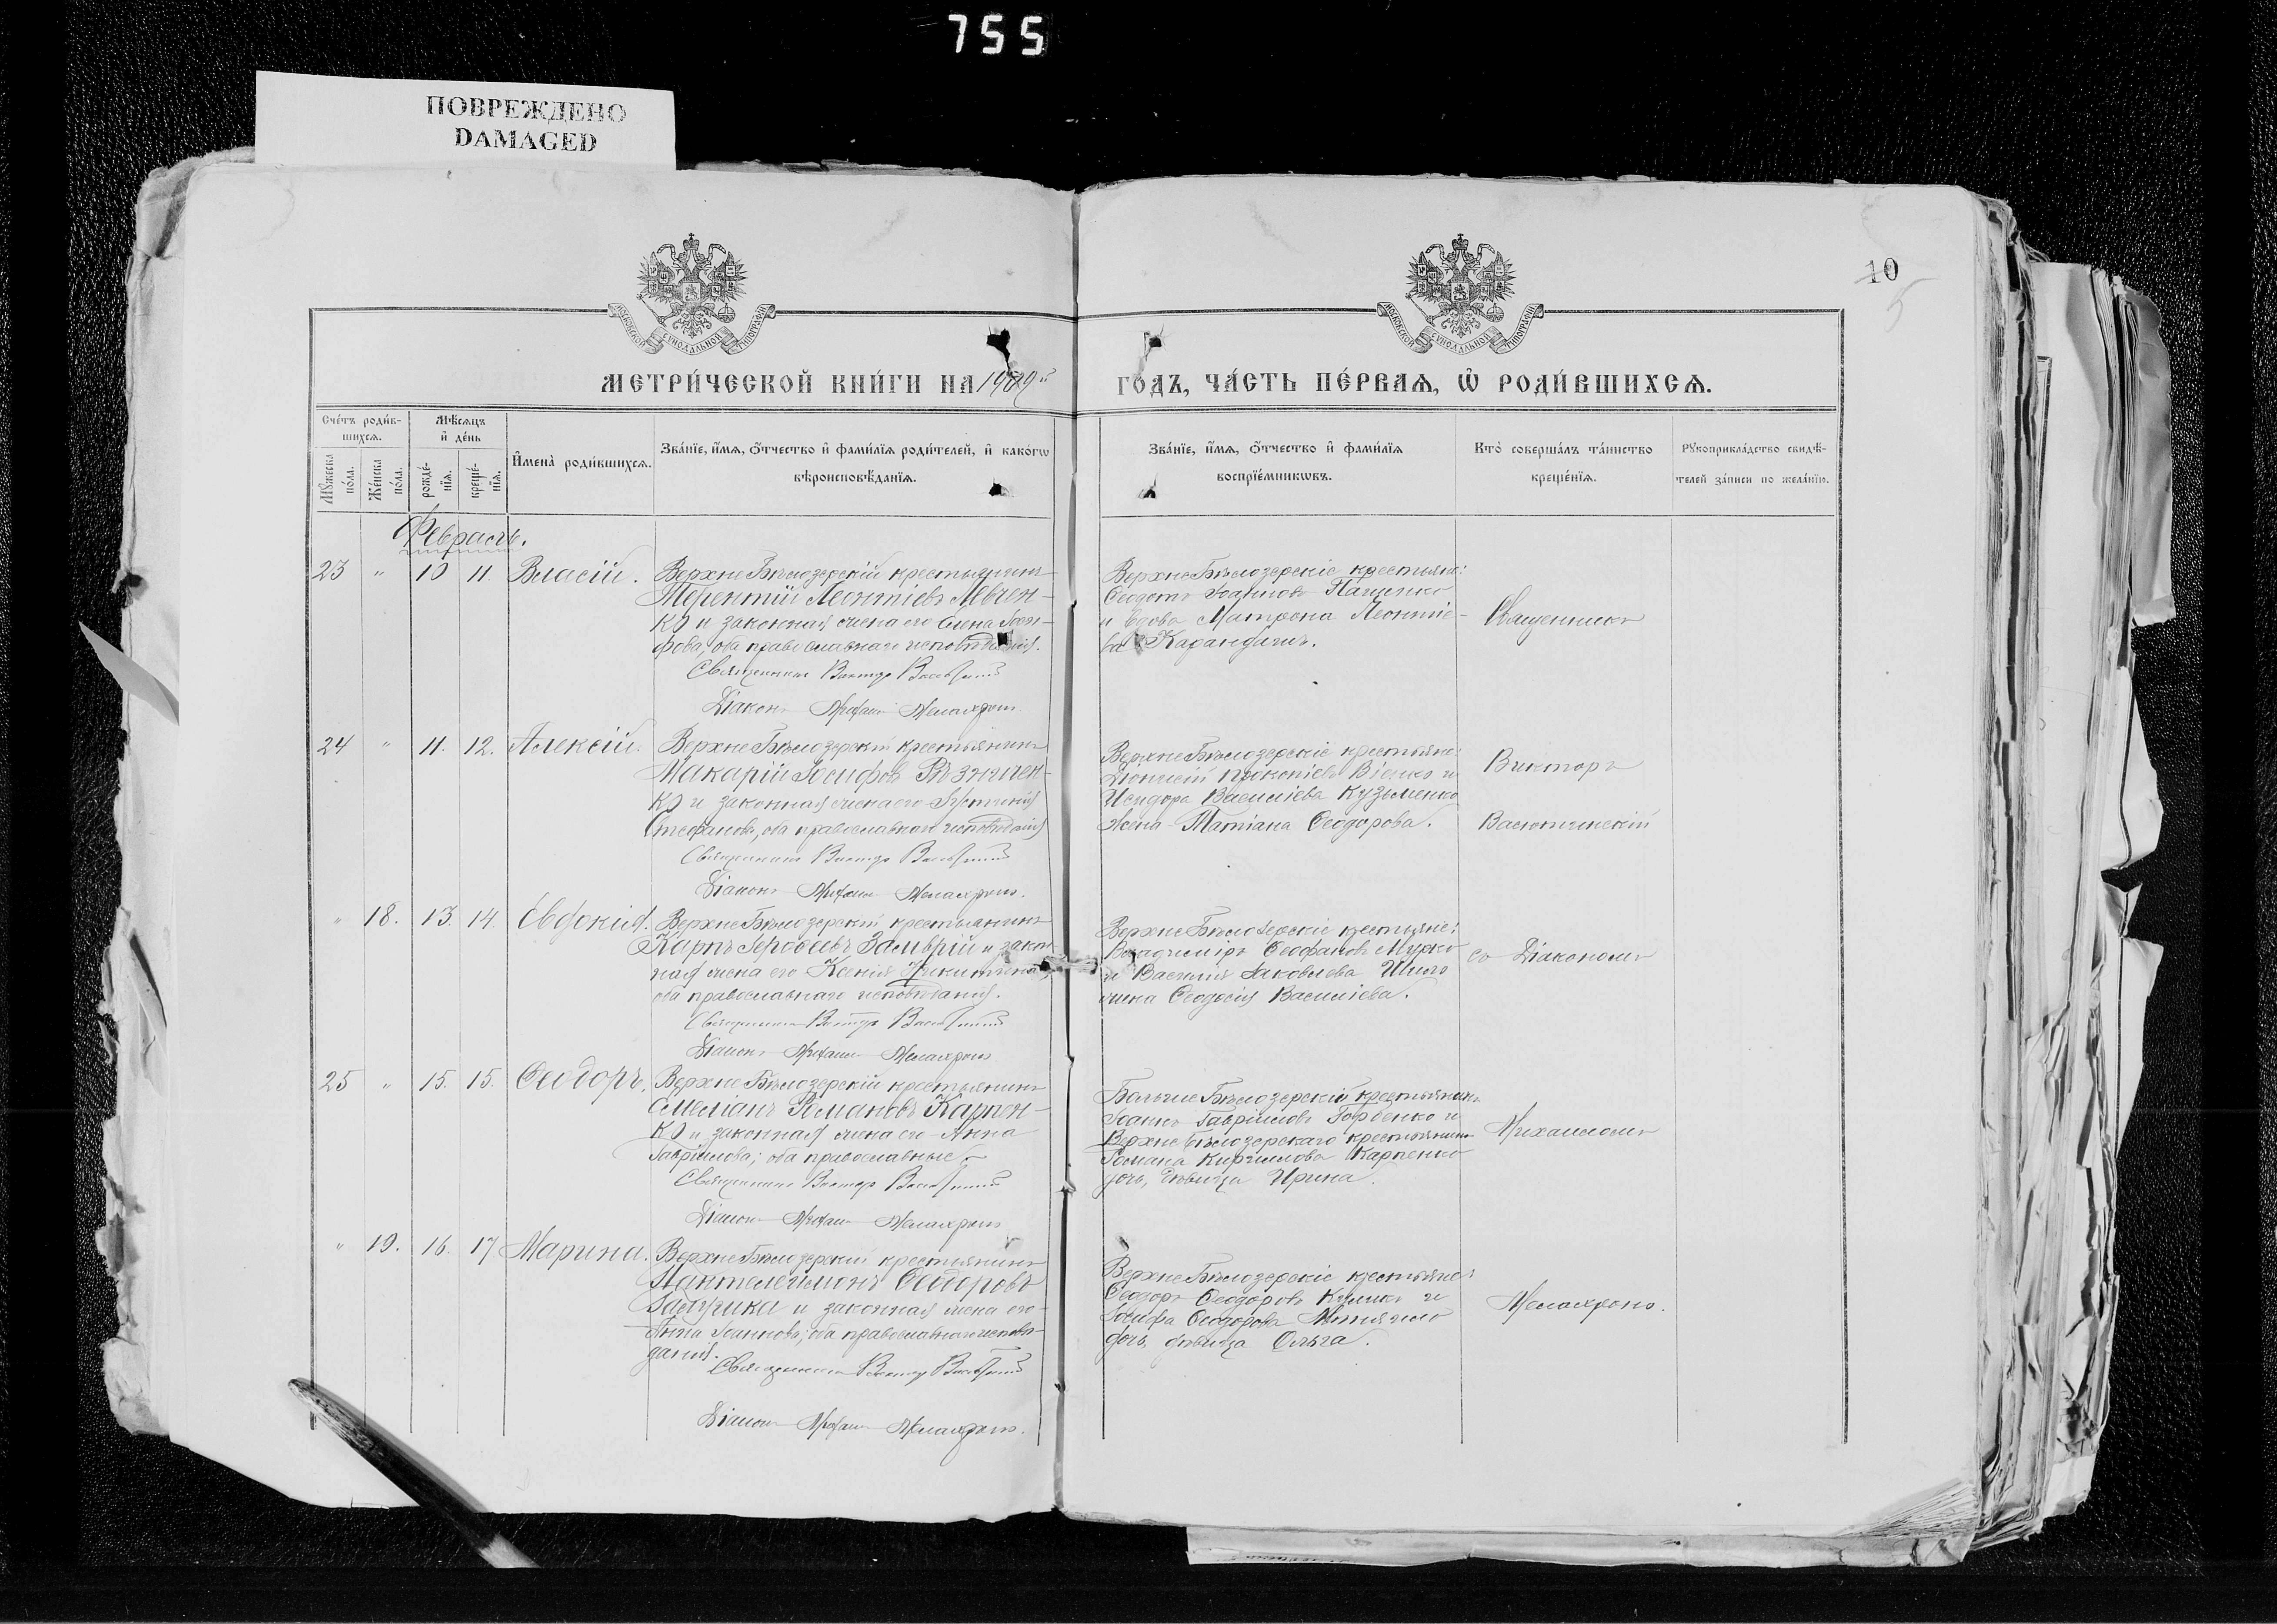 755
ПОВРЕЖДЕНО
DAMAGED
10
5
МОСКОВСКОЙ СУНОДАЛЬНОЙ ТИПОГРАФІИ
МОСКОВСКОЙ СУНОДАЛЬНОЙ ТИПОГРАФІИ
МЕТРИ́ЧЕСКОЙ КНИ́ГИ НА 1909й
ГО́ДЪ, ЧА́СТЬ ПЕ́РВАѦ, Ѡ҆ РОДИ́ВШИХСѦ.
Сче́тъ роди́в-
шихсѧ.
Му́жеска по́ла.
Же́нска по́ла.
Мѣ́сѧцъ
и҆ де́нь
рожде́-
нїѧ.
креще́-
нїѧ.
И҆мена̀ роди́вшихсѧ.
Зва́нїе, и҆́мѧ, ѻ҆́тчество и҆ фами́лїѧ роди́телей, и҆ како́гѡ
вѣроисповѣ́данїѧ.
Зва́нїе, и҆́мѧ, ѻ҆́тчество и҆ фами́лїѧ
воспрїе́мникѡвъ.
Кто̀ соверша́лъ та́инство
креще́нїѧ.
Рꙋкоприкла́дство свидѣ́-
телей за́писи по жела́нїю.
Февраль.
23 " 10 11. Власій.
ВерхнеБѣлозерскій крестьянинъ
Терентій Леонтіевъ Левчен-
ко и законная жена его Елена
оба православнаго исповѣданія.
Священникъ Викторъ
Діаконъ Михаилъ Мелахронъ
ВерхнеБѣлозерскіе крестьяне:
Ѳеодотъ Іоанновъ Пащенко
и вдова Матрона Леонтіе-
ва
Священникъ
24 " 11. 12. Алексій.
ВерхнеБѣлозерскій крестьянинъ
Макарій Іосифовъ Рѣзничен-
ко и законная жена его
Стефанова, оба православнаго исповѣданія
Священникъ Викторъ
Діаконъ Михаилъ Мелахронъ.
ВерхнеБѣлозерскіе крестьяне:
Діонисій Прокопіевъ и
Исидора Василіева Кузьменко
жена Татіана Ѳеодорова.
Викторъ
Васютинскій
" 18. 13. 14. Евдокія.
ВерхнеБѣлозерскій крестьянинъ
Карпъ и закон
ная жена его Ксенія Никитина,
оба православнаго исповѣданія.
Священникъ Викторъ
Діаконъ Михаилъ Мелахронъ
ВерхнеБѣлозерскіе крестьяне:
Владиміръ Ѳеофановъ Мурко
и Василія Іаковлева Шило
жена Ѳеодосія Василіева.
съ Діакономъ
25 " 15. 15. Ѳеодоръ.
ВерхнеБѣлозерскій крестьянинъ
Емеліанъ Романовъ Карпен-
ко и законная жена его Анна
Гавріилова; оба православные
Священникъ Викторъ
Діаконъ Михаилъ Мелахронъ
БольшеБѣлозерскій крестьянинъ
Іоаннъ Гавріиловъ Горбенко и
ВерхнеБѣлозерскаго крестьянина
Романа Кириллова Карпенко
дочь, дѣвица Ирина.
Михаиломъ
" 19. 16. 17 Марина.
ВерхнеБѣлозерскій крестьянинъ
Пантелеимонъ Ѳеодоровъ
и законная жена его
Анна Іоаннова; оба православнаго исповѣ-
данія.
Священникъ Викторъ
Діаконъ Михаилъ Мелахронъ.
ВерхнеБѣлозерскіе крестьяне:
Ѳеодоръ Ѳеодоровъ Кулико и
Іосифа Ѳеодорова
дочь дѣвица Ольга.
Мелахроно.